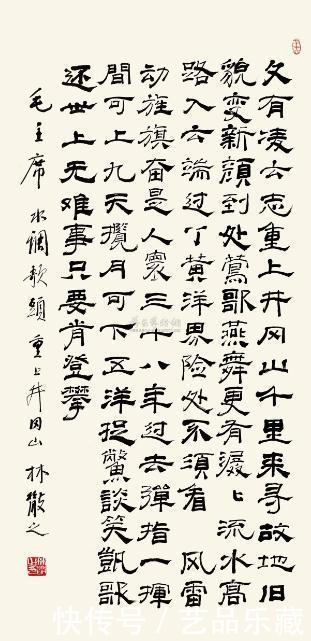 久有凌云志重上井冈山千里来寻故地旧
貌变新顔到处鶯歌燕舞更有潺〻流水高
路入云端过了黄洋界险处不须看 风雷
动旌旗奋是人寰三十八年过去彈指一揮
間可上九天攬月可下五洋捉鱉談笑凱歌
还世上无难事只要肯登攀
毛主席 水调歌頭 重上井冈山 林散之
快传号 / 艺品乐藏